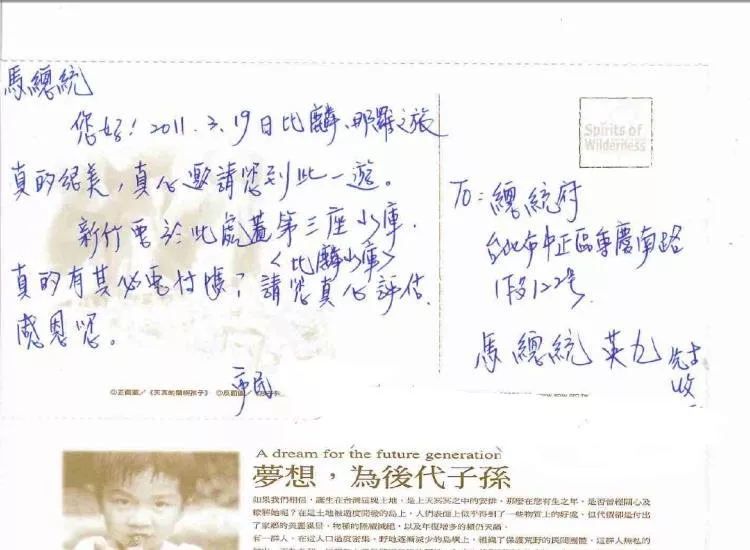 馬總統
您好！2011.3.19日比麟、那羅之旅
真的絕美，真心邀請您到此一遊。
新竹要於此處蓋第三座水庫.
<比麟水庫>
真的有其必要性嗎？請您真心評估.
感恩您。
Spirits of
Wilderness
To：總統府
台北市中正區重慶南路
1段122號
馬總統 英九 先生
收
A dream for the future generation
夢想，為後代子孫
如果我們相信，誕生在台灣這塊土地，是上天冥冥之中的安排，那麼在您有生之年，是否曾經關心及
瞭解她呢？在這土地被過度開發的島上，人們表面上似乎得到了一些物質上的好處，但代價卻是付出
了家鄉的美麗風景、物種的陸續滅絕，以及年復增多的天災。
有一群人，在這人口過度密集、野地逐漸減少的島嶼上，組織了保護荒野的民間團體，這群人無私的